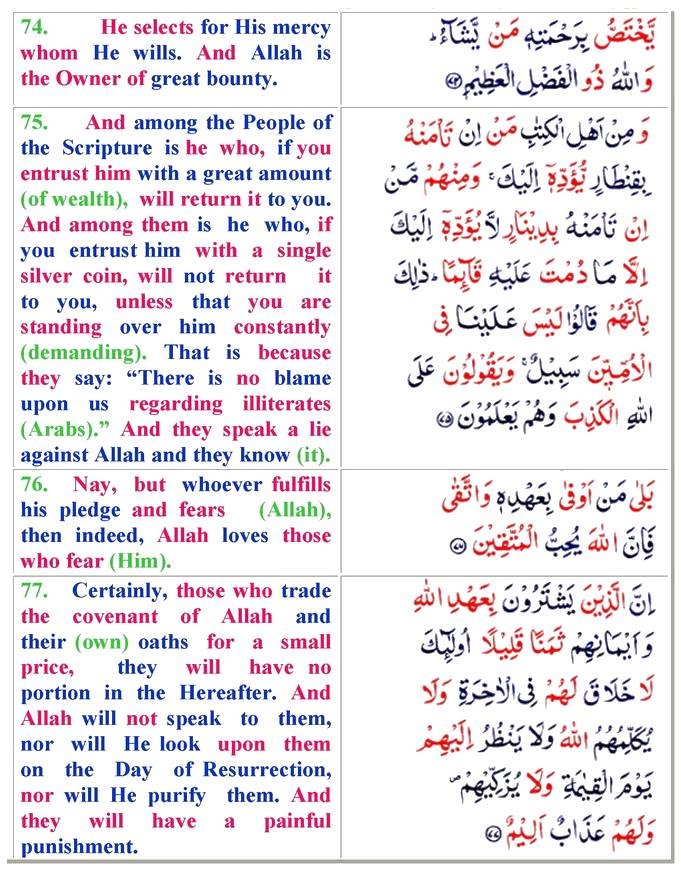 74. He selects for His mercy
whom He wills. And Allah is
the Owner of great bounty.
يَّخْتَصُّ بِرَحْمَتِهٖ مَنْ يَّشَآءُ ؕ
وَاللّٰهُ ذُو الْفَضْلِ الْعَظِيْمِ ﴿۷۴﴾
75. And among the People of
the Scripture is he who, if you
entrust him with a great amount
(of wealth), will return it to you.
And among them is he who, if
you entrust him with a single
silver coin, will not return it
to you, unless that you are
standing over him constantly
(demanding). That is because
they say: “There is no blame
upon us regarding illiterates
(Arabs).” And they speak a lie
against Allah and they know (it).
وَمِنْ اَهْلِ الْكِتٰبِ مَنْ اِنْ تَاْمَنْهُ
بِقِنْطَارٍ يُّؤَدِّهٖۤ اِلَيْكَ ۚ وَمِنْهُمْ مَّنْ
اِنْ تَاْمَنْهُ بِدِيْنَارٍ لَّا يُؤَدِّهٖۤ اِلَيْكَ
اِلَّا مَا دُمْتَ عَلَيْهِ قَآئِمًا ؕ ذٰلِكَ
بِاَنَّهُمْ قَالُوْا لَيْسَ عَلَيْنَا فِى
الْاُمِّيّٖنَ سَبِيْلٌ ۚ وَيَقُوْلُوْنَ عَلَى
اللّٰهِ الْكَذِبَ وَهُمْ يَعْلَمُوْنَ ﴿۷۵﴾
76. Nay, but whoever fulfills
his pledge and fears (Allah),
then indeed, Allah loves those
who fear (Him).
بَلٰى مَنْ اَوْفٰى بِعَهْدِهٖ وَاتَّقٰى
فَاِنَّ اللّٰهَ يُحِبُّ الْمُتَّقِيْنَ ﴿۷۶﴾
77. Certainly, those who trade
the covenant of Allah and
their (own) oaths for a small
price, they will have no
portion in the Hereafter. And
Allah will not speak to them,
nor will He look upon them
on the Day of Resurrection,
nor will He purify them. And
they will have a painful
punishment.
اِنَّ الَّذِيْنَ يَشْتَرُوْنَ بِعَهْدِ اللّٰهِ
وَاَيْمَانِهِمْ ثَمَنًا قَلِيْلًا اُولٰٓئِكَ
لَا خَلَاقَ لَهُمْ فِى الْاٰخِرَةِ وَلَا
يُكَلِّمُهُمُ اللّٰهُ وَلَا يَنْظُرُ اِلَيْهِمْ
يَوْمَ الْقِيٰمَةِ وَلَا يُزَكِّيْهِمْ ۪
وَلَهُمْ عَذَابٌ اَلِيْمٌ ﴿۷۷﴾